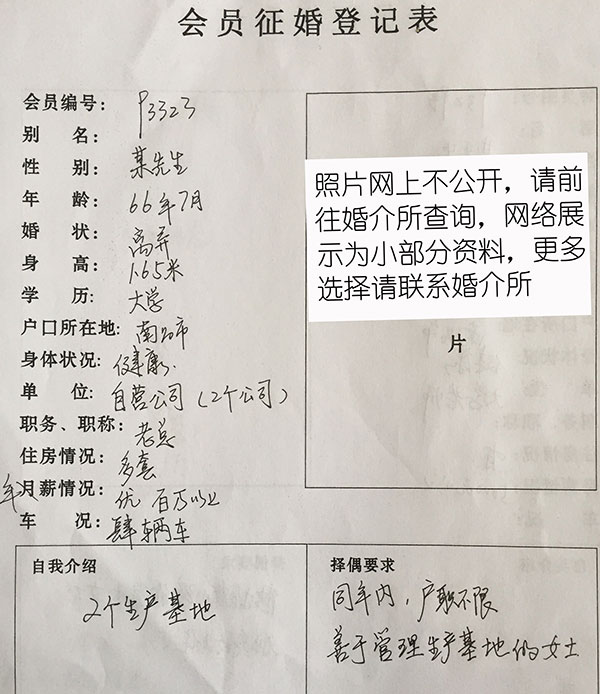 会员征婚登记表
会员编号: P3323
别 名:
性 别: 某先生
年 龄: 66年7月
婚 状: 离异
身 高: 1.65米
学 历: 大学
户口所在地: 南昌市
身体状况: 健康
单 位: 自营公司(2个公司)
职务、职称: 老总
住房情况: 多套
年 月薪情况: 优 百万以上
车 况: 肆辆车
照片网上不公开，请前
往婚介所查询，网络展
示为小部分资料，更多
选择请联系婚介所
片
自我介绍
2个生产基地
择偶要求
同年内，户职不限
善于管理生产基地的女士